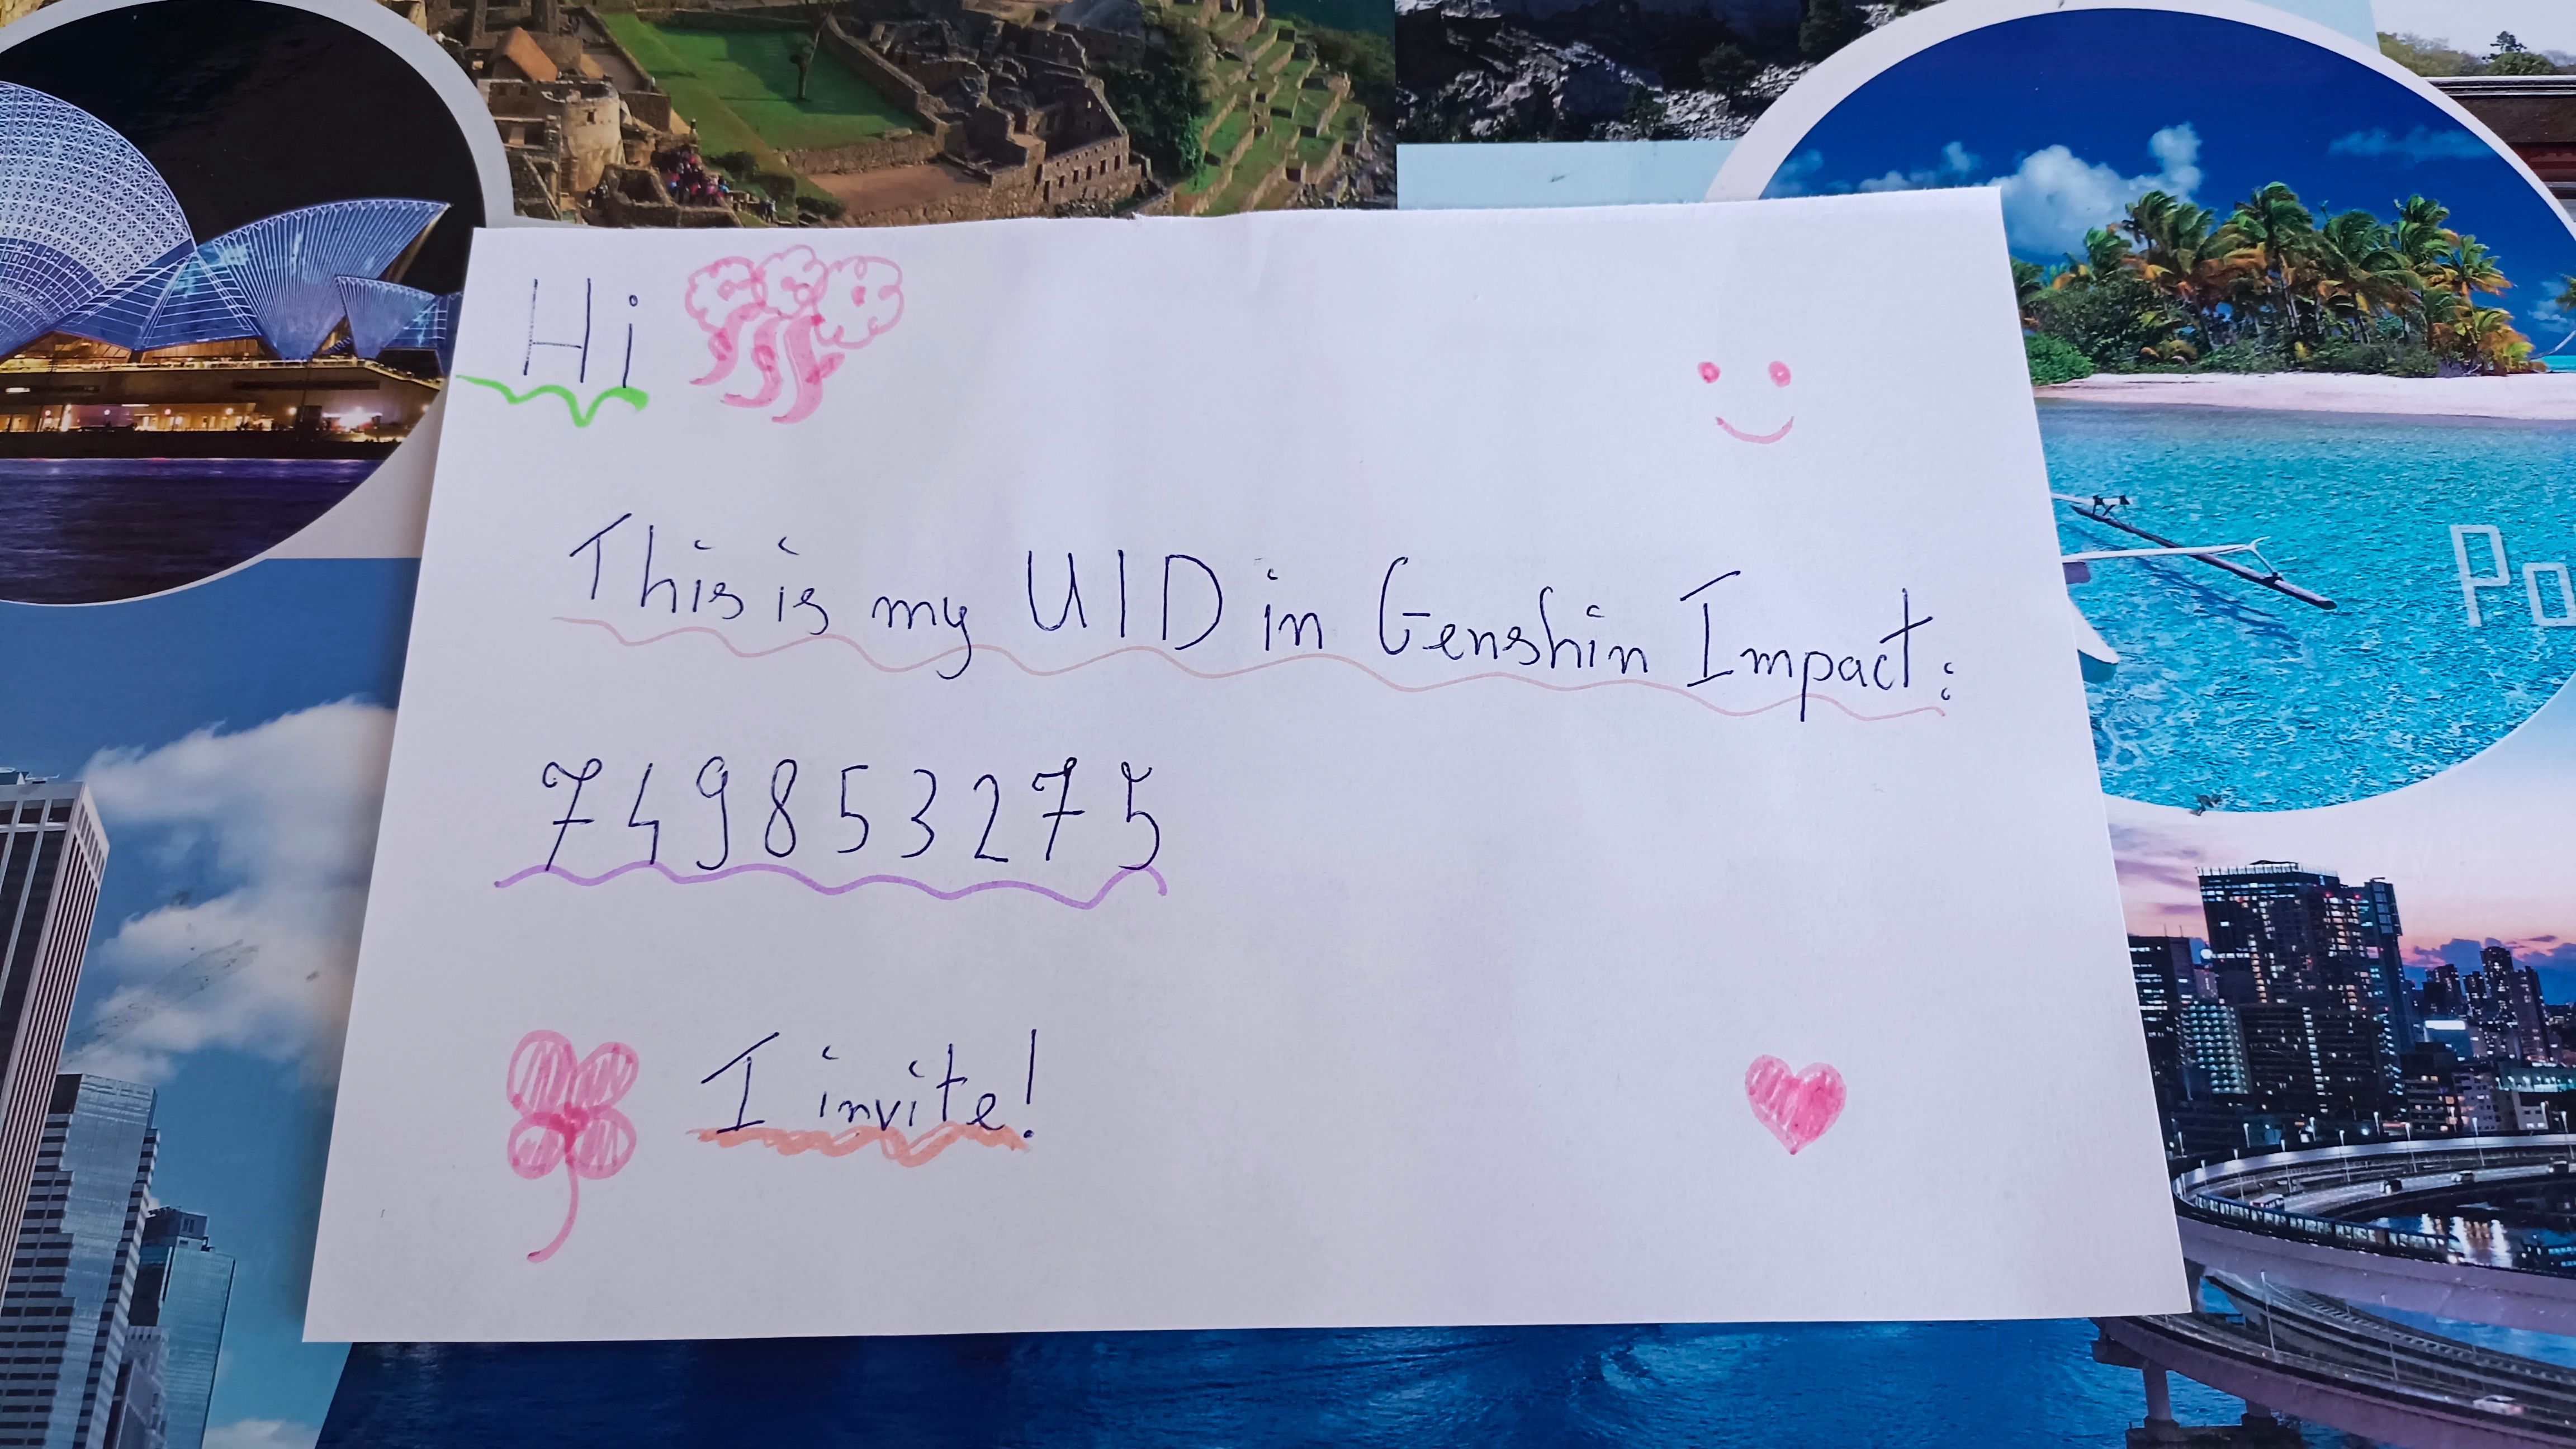 Hi
This is my UID in Genshin Impact:
749853275
I invite!